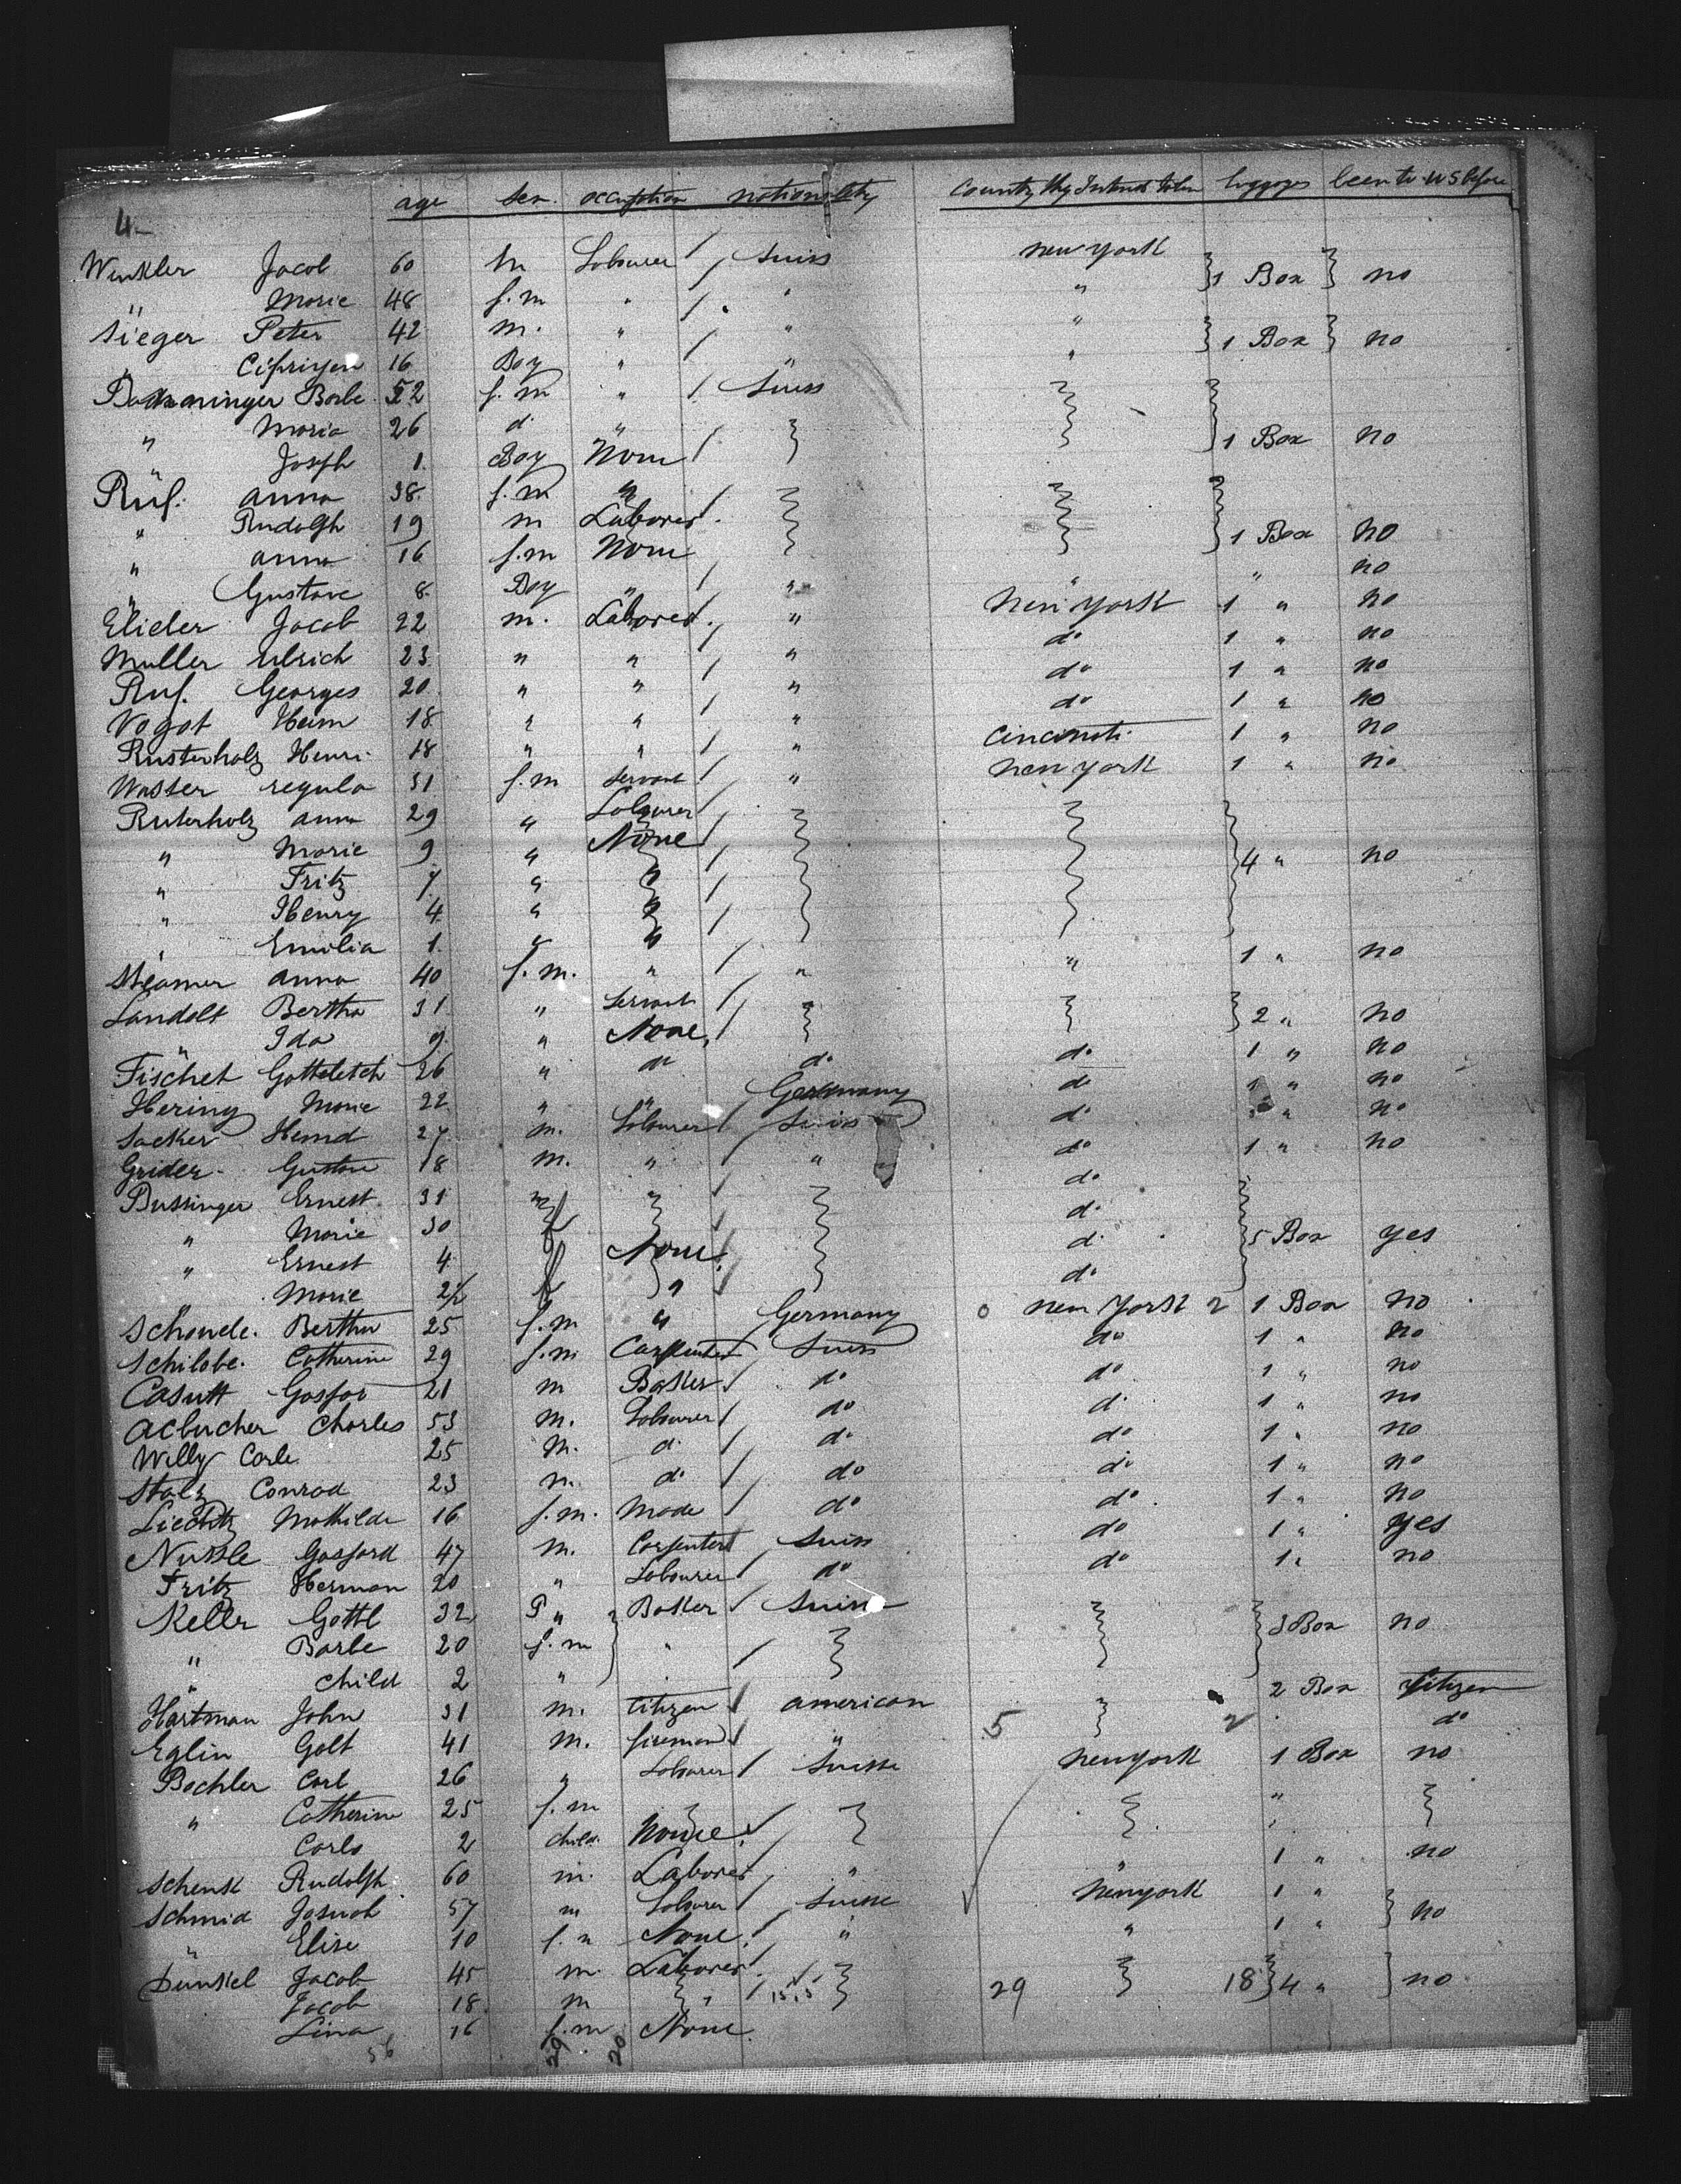 4 age sex occupation nationality Country they Intends luggages been to US before
Winkler Jacob 60 m Labourer Suiss new york 1 Box no
" Marie 48 f.m " " "
Sieger Peter 42 m. " " " 1 Box no
" Cipriyen 16 Boy " " "
Barbe 52 f.m " Suiss
" Maria 26 d " 1 Box no
" Joseph 1 Boy None
Rüf. anna 38 f.m "
" Rudolph 19 m Laborer 1 Box no
" anna 16 f.m None no
" Gustave 8 Boy " " " "
Elieler Jacob 22 m. Laborer " New York 1 " no
Muller Ulrich 23 " " " do 1 " no
Ruf. Georges 20 " " " do 1 " no
Vogot Heim 18 " " " do 1 " no
Rusterholz Henri 18 " " " Cincinati 1 " no
Wasser regula 31 f.m servant " New york 1 " no
Ruterholz anna 29 " Labourer
" Marie 9 " None 4 " no
" Fritz 7 " "
" Henry 4 " "
" Emilia 1 " "
anna 40 f.m. " " " 1 " no
Landolt Bertha 31 " Servant 2 " no
" Ida 9 " None
Fischet 26 " do do do 1 " no
Hering Marie 22 " " Germany do " no
Sacker Hemd 27 m. Labourer Suiss do " no
Grider Gustave 18 m. " " do 1 " no
Bussinger Ernest 31 m " do
" Marie 30 f do 5 Box yes
" Ernest 4 None do
" Marie 2½ f " do
Schonde. Bertha 25 f.m " Germany 0 new York 2 1 Box no
Schilobe. Catherine 29 f.m Carpenter Suiss do 1 " no
Casutt Gaspar 21 m Baker do do 1 " no
Acbucher Charles 53 m. Labourer do do 1 " no
Willy Carle 25 M. d. do do 1 " no
Stalz Conrad 23 m. do do do 1 " no
Liechtz Mathilde 16 f.m. Made do do 1 " no
Nussle Gaspard 47 m. Carpenter Suiss do 1 " yes
Fritz Herman 20 " Labourer do do 1 " no
Keller Gottl 32 " Baker Suiss
" Barbe 20 f.m " 3 Box no
" child 2 "
Hartman John 31 m. Citizen american 2 Box Citizen
Eglin Golt 41 m. fireman " 5 2 do
Bochler Carl 26 " Labourer Suisse New york 1 Box no
" Catherine 25 f.m "
Carlo 2 child. None "
Schenk Rudolph 60 m. Laborer " " 1 " no
Schmid Josuah 57 m Labourer Suisse New york 1 "
" Elise 10 f.m None " " 1 " no
Dunkel Jacob 45 m. Laborer
Jacob 18 m " 29 18 4 " no
Lina 16 f.m None
56 29 20